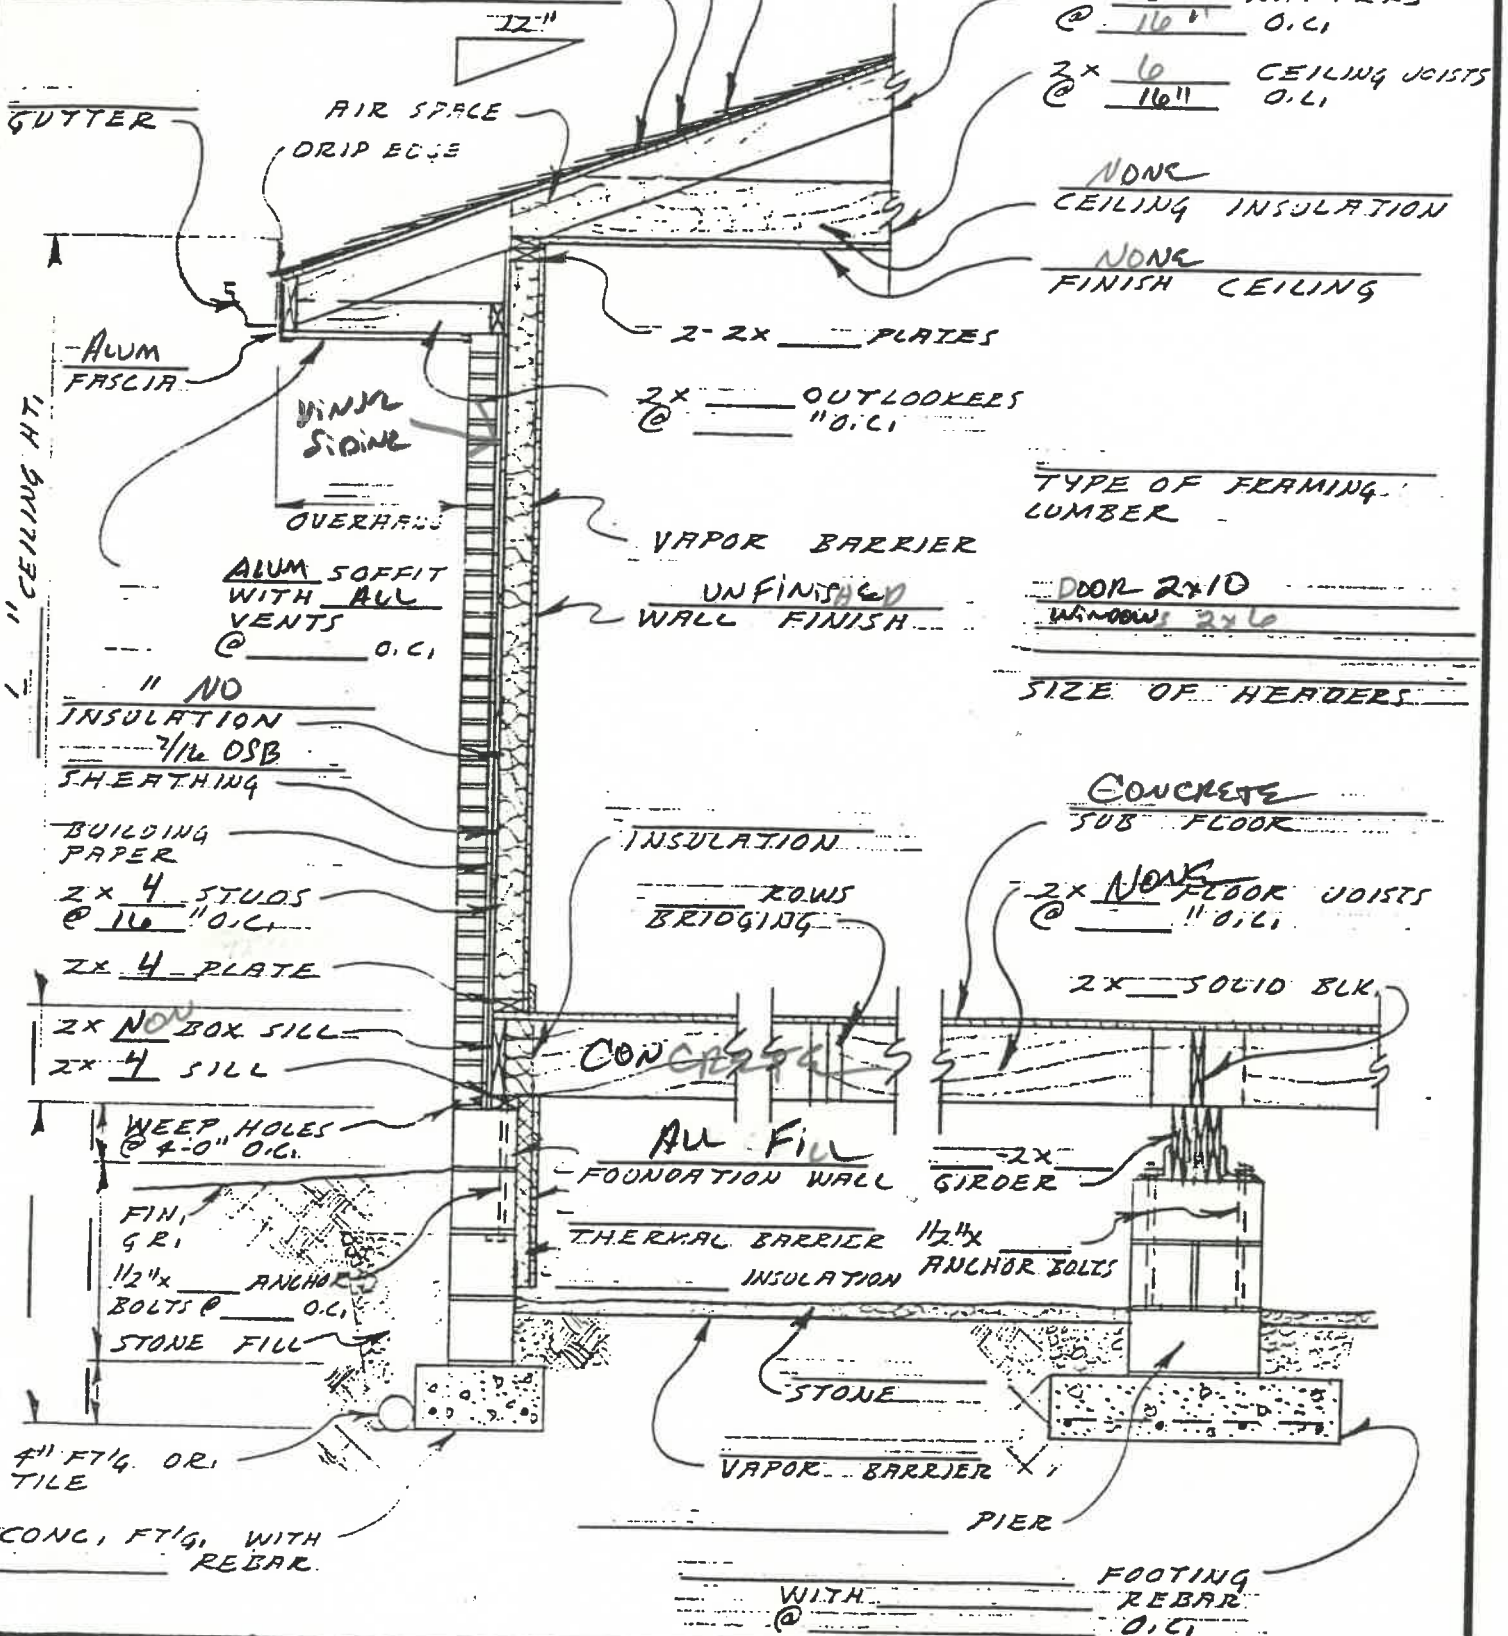 12"
@ 16" O.C.
2 x 6 CEILING JOISTS
@ 16" O.C.
GUTTER
AIR SPACE
DRIP EDGE
NONE
CEILING INSULATION
NONE
FINISH CEILING
2-2x ____ PLATES
-ALUM
FASCIA
2x ____ OUTLOOKERS
@ ____ "O.C.
VINYL
SIDING
" CEILING HT.
OVERHANG
TYPE OF FRAMING
LUMBER
VAPOR BARRIER
ALUM SOFFIT
WITH ALL
VENTS
@ ____ O.C.
UNFINISHED
WALL FINISH
DOOR 2x10
WINDOWS 2x6
SIZE OF HEADERS
" NO
INSULATION
7/16 OSB
SHEATHING
BUILDING
PAPER
2 x 4 STUDS
@ 16 "O.C.
2x 4 PLATE
2x NON BOX SILL
2x 4 SILL
INSULATION
____ ROWS
BRIDGING
CONCRETE
SUB FLOOR
2x NONE FLOOR JOISTS
@ ____ "O.C.
2x __ SOLID BLK.
CONCRETE
WEEP HOLES
@ 4-0" O.C.
ALL FILL
FOUNDATION WALL
____-2x ____
GIRDER
FIN.
GR.
THERMAL BARRIER
____ INSULATION
1/2"x ____
ANCHOR BOLTS
1/2"x ____ ANCHOR
BOLTS @ ____ O.C.
STONE FILL
STONE
4" FT'G. DR.
TILE
VAPOR BARRIER
____ PIER
CONC. FT'G. WITH
____ REBAR
____ FOOTING
WITH ____ REBAR
@ ____ O.C.